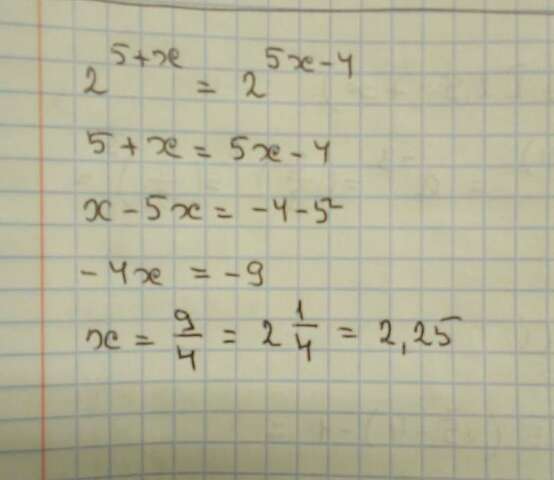 2^(5+x) = 2^(5x-4)
5 + x = 5x - 4
x - 5x = -4 - 5
-4x = -9
x = 9/4 = 2 1/4 = 2,25